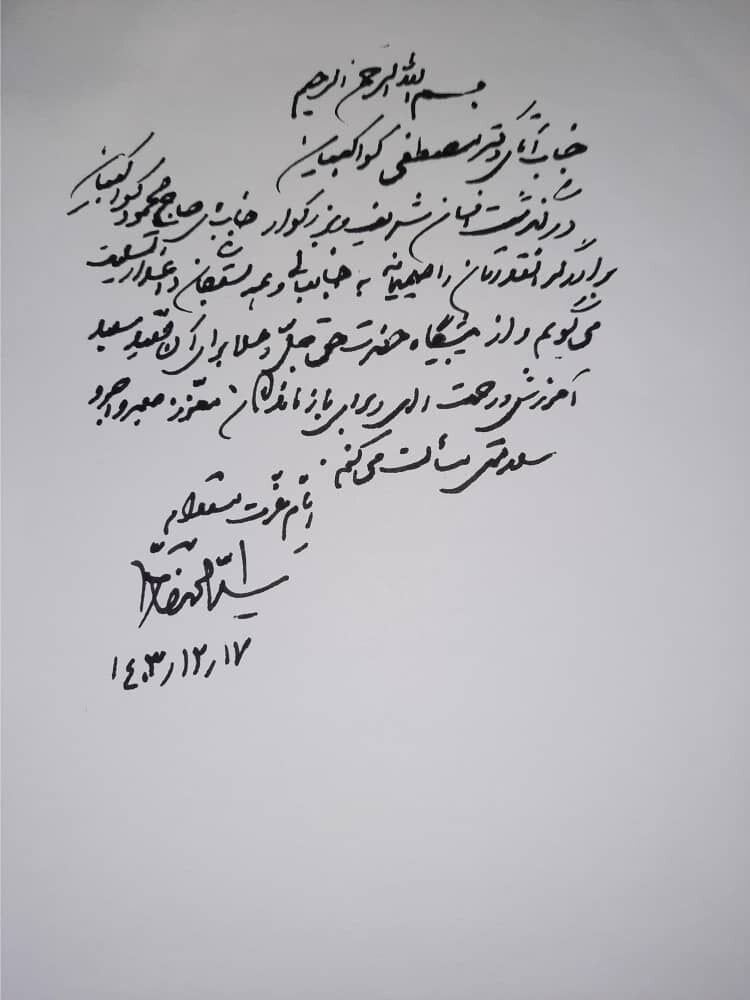 بسم الله الرحمن الرحیم
جناب آقای دکتر مصطفی کواکبیان
درگذشت انسان شریف و بزرگوار جناب آقای حاج محمود کواکبیان
برادر گرانقدرتان را صمیمانه به جنابعالی و همه بستگان داغدار تسلیت
می گویم و از پیشگاه حضرت حق جلّ و علا برای آن فقید سعید
آمرزش و رحمت الهی و برای بازماندگان معزز صبر و اجر و
سلامتی مسألت می کنم.
ایّام عزت مستدام
سید
۱۴۰۳٫۱۲٫۱۷